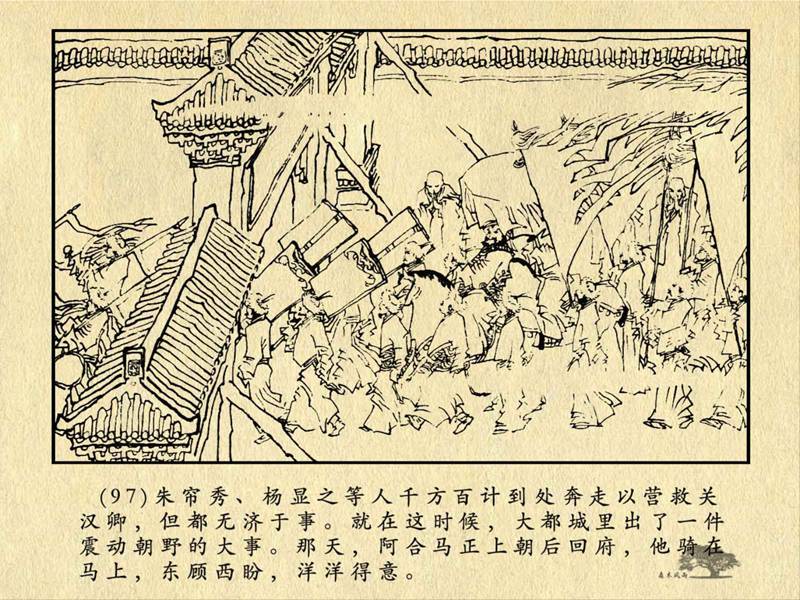 (97)朱帘秀、杨显之等人千方百计到处奔走以营救关
汉卿，但都无济于事。就在这时候，大都城里出了一件
震动朝野的大事。那天，阿合马正上朝后回府，他骑在
马上，东顾西盼，洋洋得意。